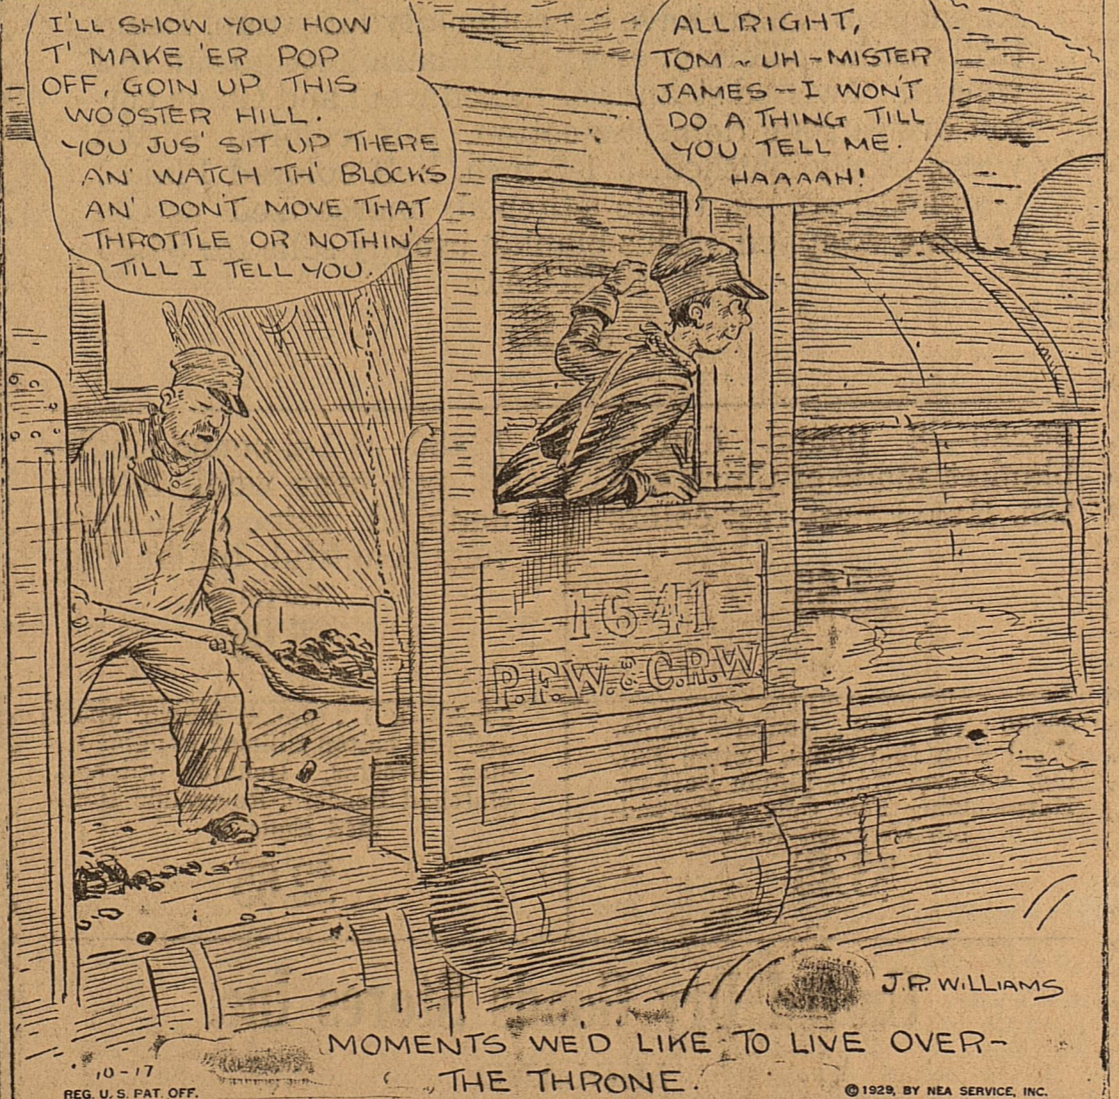 I'LL SHOW YOU HOW
T' MAKE 'ER POP
OFF, GOIN UP THIS
WOOSTER HILL.
YOU JUS' SIT UP THERE
AN' WATCH TH' BLOCKS
AN' DON'T MOVE THAT
THROTTLE OR NOTHIN'
TILL I TELL YOU.
ALL RIGHT,
TOM ~ UH ~ MISTER
JAMES ~ I WON'T
DO A THING TILL
YOU TELL ME.
HAAAAH!
1641
P.F.W. & C.R.W.
J.R. WILLIAMS
MOMENTS WE'D LIKE TO LIVE OVER-
THE THRONE.
10-17
REG. U. S. PAT. OFF.
© 1929, BY NEA SERVICE, INC.